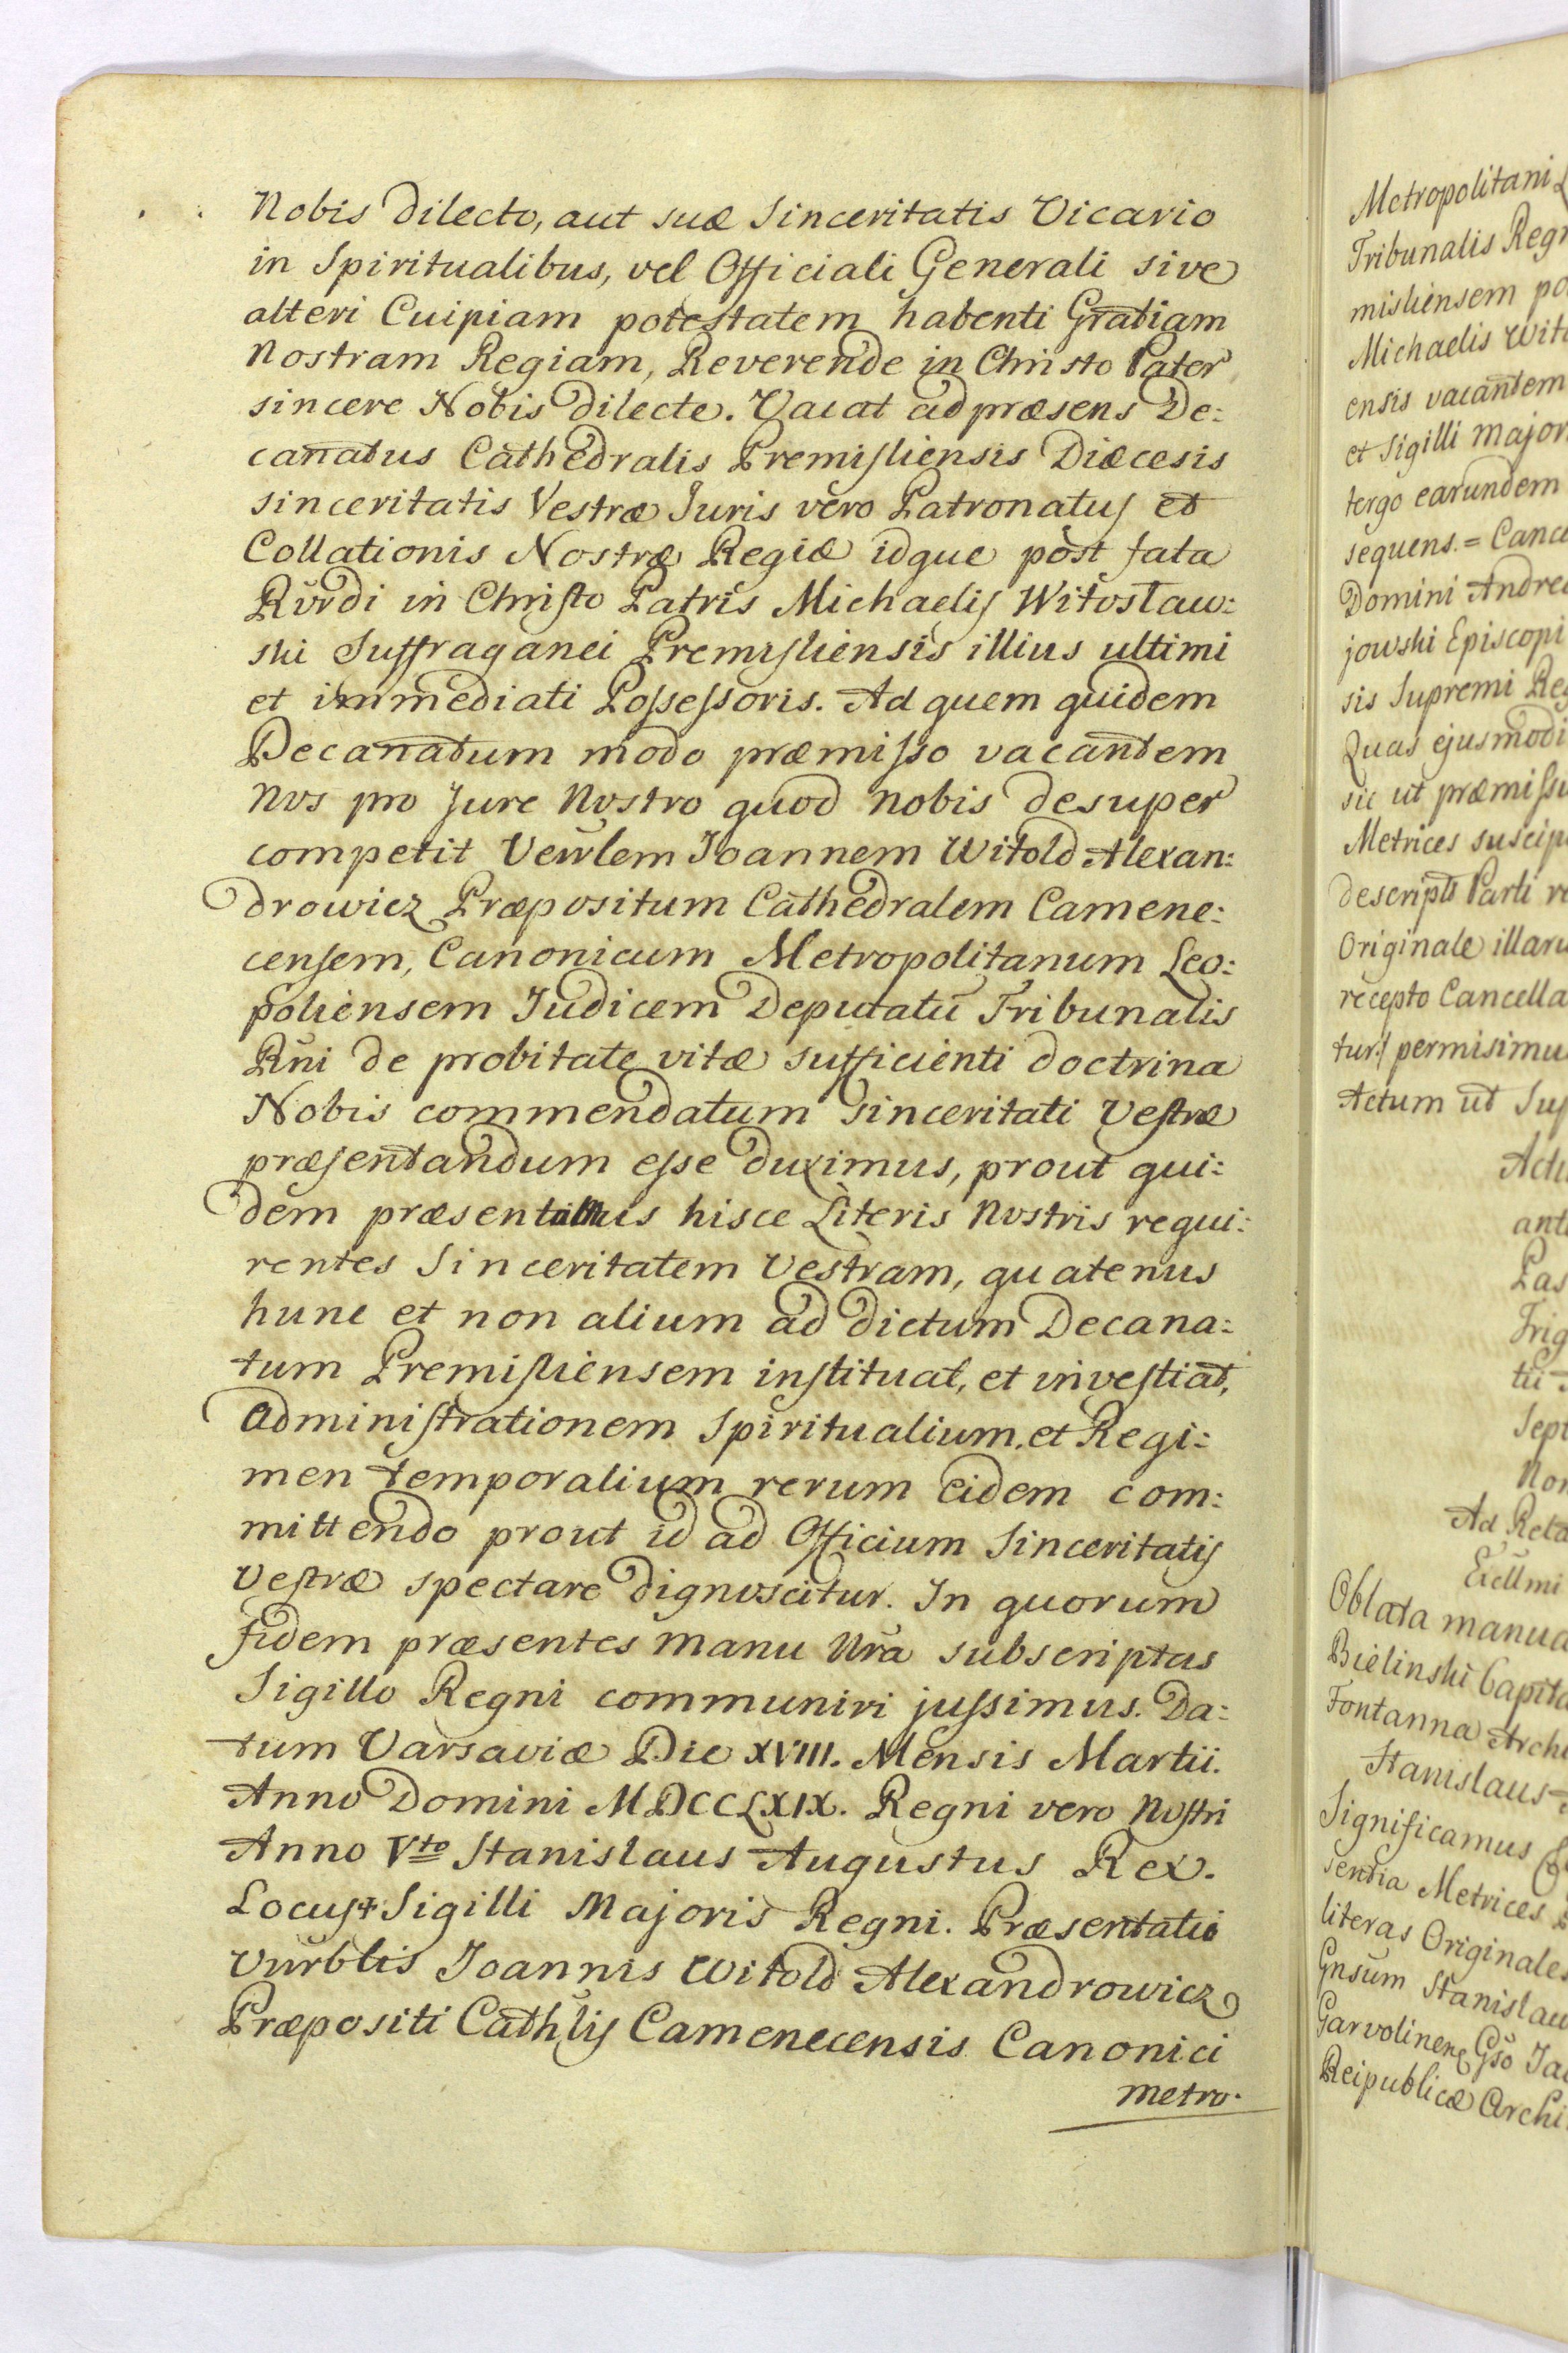 Nobis Dilecto, aut suæ Sinceritatis Vicario
in Spiritualibus, vel Officiali Generali sive
alteri Cuipiam potestatem habenti Gratiam
Nostram Regiam, Reverende in Christo Pater
sincere Nobis Dilecte. Vacat ad præsens De:
canatus Cathedralis Premisliensis Diæcesis
sinceritatis Vestræ Juris vero Patronatus et
Collationis Nostræ Regiæ idque post fata
Rvrdi in Christo Patris Michaelis Witosław:
ski Suffraganei Premisliensis illius ultimi
et immediati Possessoris. Ad quem quidem
Decanatum modo præmisso vacantem
Nos pro Jure Nostro quod Nobis desuper
competit Vewlem Joannem Witold Alexan:
drowicz Præpositum Cathedralem Camene:
censem, Canonicum Metropolitanum Leo:
poliensem Judicem Deputatū Tribunalis
Rni de probitate vitæ sufficienti doctrina
Nobis commendatum Sinceritati Vestræ
præsentandum esse duximus, prout qui:
dem præsentamus hisce Literis Nostris requi:
rentes Sinceritatem Vestram, quatenus
hunc et non alium ad dictum Decana:
tum Premisliensem instituat, et investiat,
administrationem Spiritualium et Regi:
men temporalium rerum eidem com:
mittendo prout id ad Officium Sinceritatis
Vestræ spectare dignoscitur. In quorum
fidem præsentes manu Nra subscriptas
Sigillo Regni communiri jussimus. Da:
tum Varsaviæ Die XVIII. Mensis Martii.
Anno Domini MDCCLXIX. Regni vero Nostri
Anno Vto Stanislaus Augustus Rex.
Locus + Sigilli Majoris Regni. Præsentatio
Vnrblis Joannis Witold Alexandrowicz
Præpositi Cathlis Camenecensis Canonici
metro.
Metropolitani
Tribunalis
misliensem
Michaelis
ensis vacantem
et Sigilli
tergo earundem
sequens. =
Domini
jowski Episcopi
sis Supremi
Quas ejusmodi
sic ut
Metrices
descripti Parti
Originale
recepto
tur:/
Actum ut
Ad
Oblata
Bielinski
Fontanna
Stanislaus
Significamus
sentia Metrices
literas
Gnsum
Garvolinen Gso
Reipublicæ